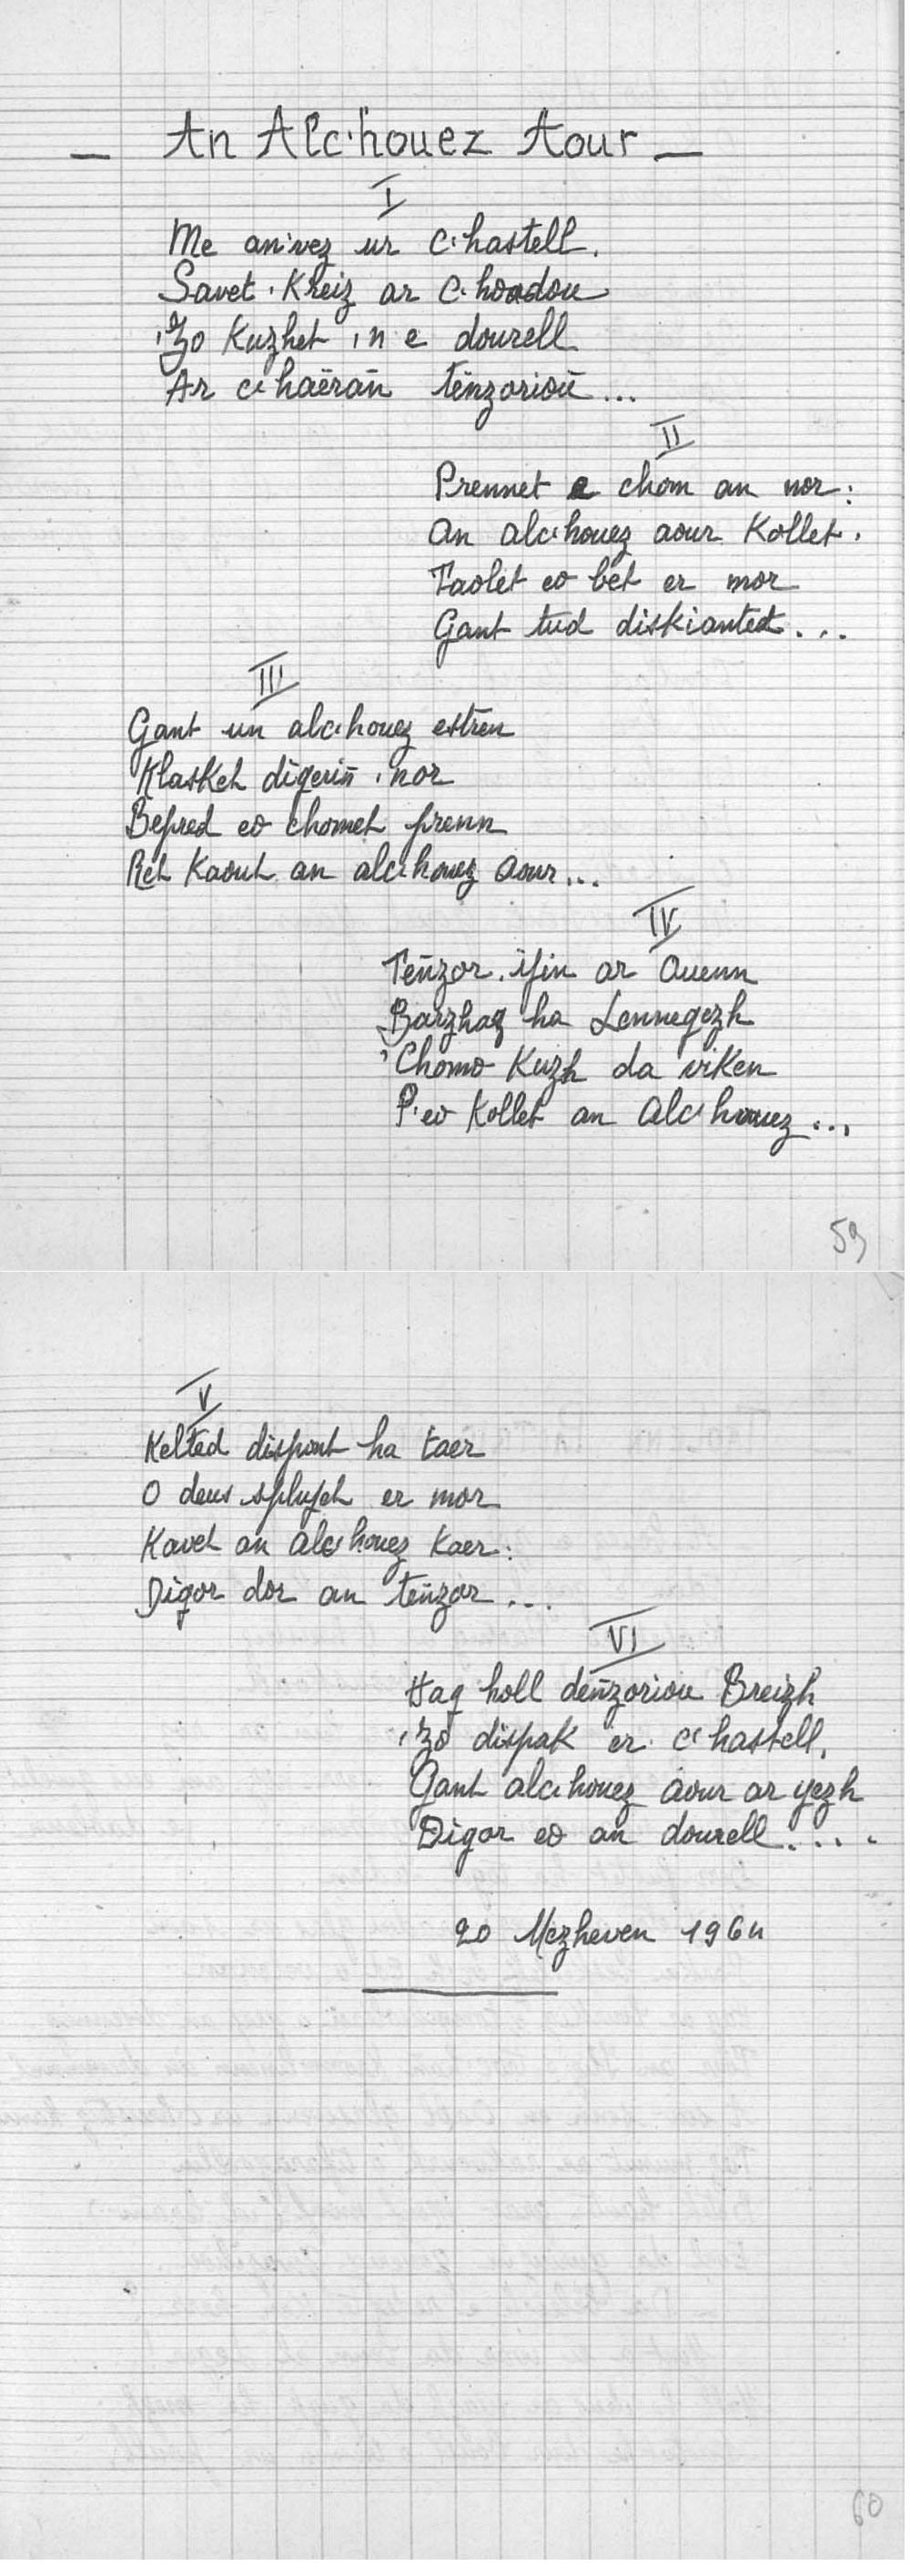 — An Alc'houez Aour —
I
Me an'vez ur c'hastell.
Savet 'Kreiz ar c'hoadou
'Zo Kuzhet 'n e dourell
Ar c'haërañ tênzorioù...
II
Prennet e chom an nor:
An alc'houez aour Kollet.
Taolet eo bet er mor
Gant tud diskianted...
III
Gant un alc'houez estren
Klasket digeriñ 'nor
Bepred eo chomet prenn
Ret Kaout an alc'houez aour...
IV
Teñzor ifin ar Ouenn
Barzhag ha Lennegezh
'Chomo Kuzh da viken
P'eo Kollet an alc'houez...
59
V
Kelted dispont ha taer
O deus splujet er mor
Kavet an alc'houez Kaer:
Digor dor an teñzor...
VI
Hag holl deñzoriou Breizh
'Zo dispak er c'hastell,
Gant alc'houez aour ar yezh
Digor eo an dourell....
20 Mezheven 1964
60